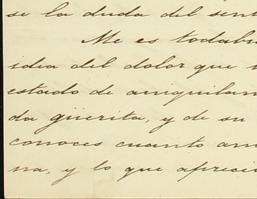 se la duda del sent
Me es todabi
idea del dolor que
estado de aniquilam
da güerita, y de su
conoces cuanto am
na, y lo que apreci